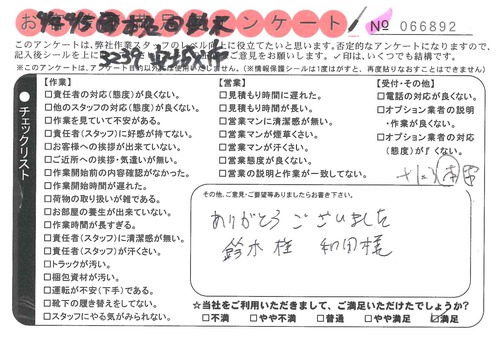 No 066892
このアンケートは、弊社作業スタッフのレベル向上に役立てたいと思います。否定的なアンケートになりますので、
記入後シールを上に
ご意見をお願いします。✓印は、いくつでも結構です。
※このアンケートは、アンケート目的以外は使用いたしません。（※情報保護シールは1度はがすと、再度貼りなおすことはできません）
チェックリスト
【作業】
□責任者の対応（態度）が良くない。
□他のスタッフの対応（態度）が良くない。
□作業を見ていて不安がある。
□責任者（スタッフ）に好感が持てない。
□お客様への挨拶が出来ていない。
□ご近所への挨拶・気遣いが無い。
□作業開始前の内容確認がなかった。
□作業開始時間が遅れた。
□荷物の取り扱いが雑である。
□お部屋の養生が出来ていない。
□作業時間が長すぎる。
□責任者（スタッフ）に清潔感が無い。
□責任者（スタッフ）が汗くさい。
□トラックが汚い。
□梱包資材が汚い。
□運転が不安（下手）である。
□靴下の履き替えをしてない。
□スタッフにやる気がみられない。
【営業】
□見積もり時間に遅れた。
□見積もり時間が長い。
□営業マンに清潔感が無い。
□営業マンが煙草くさい。
□営業マンが汗くさい。
□営業態度が良くない。
□営業の説明と作業が一致してない。
【受付・その他】
□電話の対応が良くない。
□オプション業者の説明
・作業が良くない。
□オプション業者の対応
（態度）が良くない。
その他、ご意見・ご要望等ありましたらお書き下さい。
ありがとうございました
鈴木様 和田様
☆当社をご利用いただきまして、ご満足いただけたでしょうか？
□不満 □やや不満 □普通 □やや満足 ☑満足